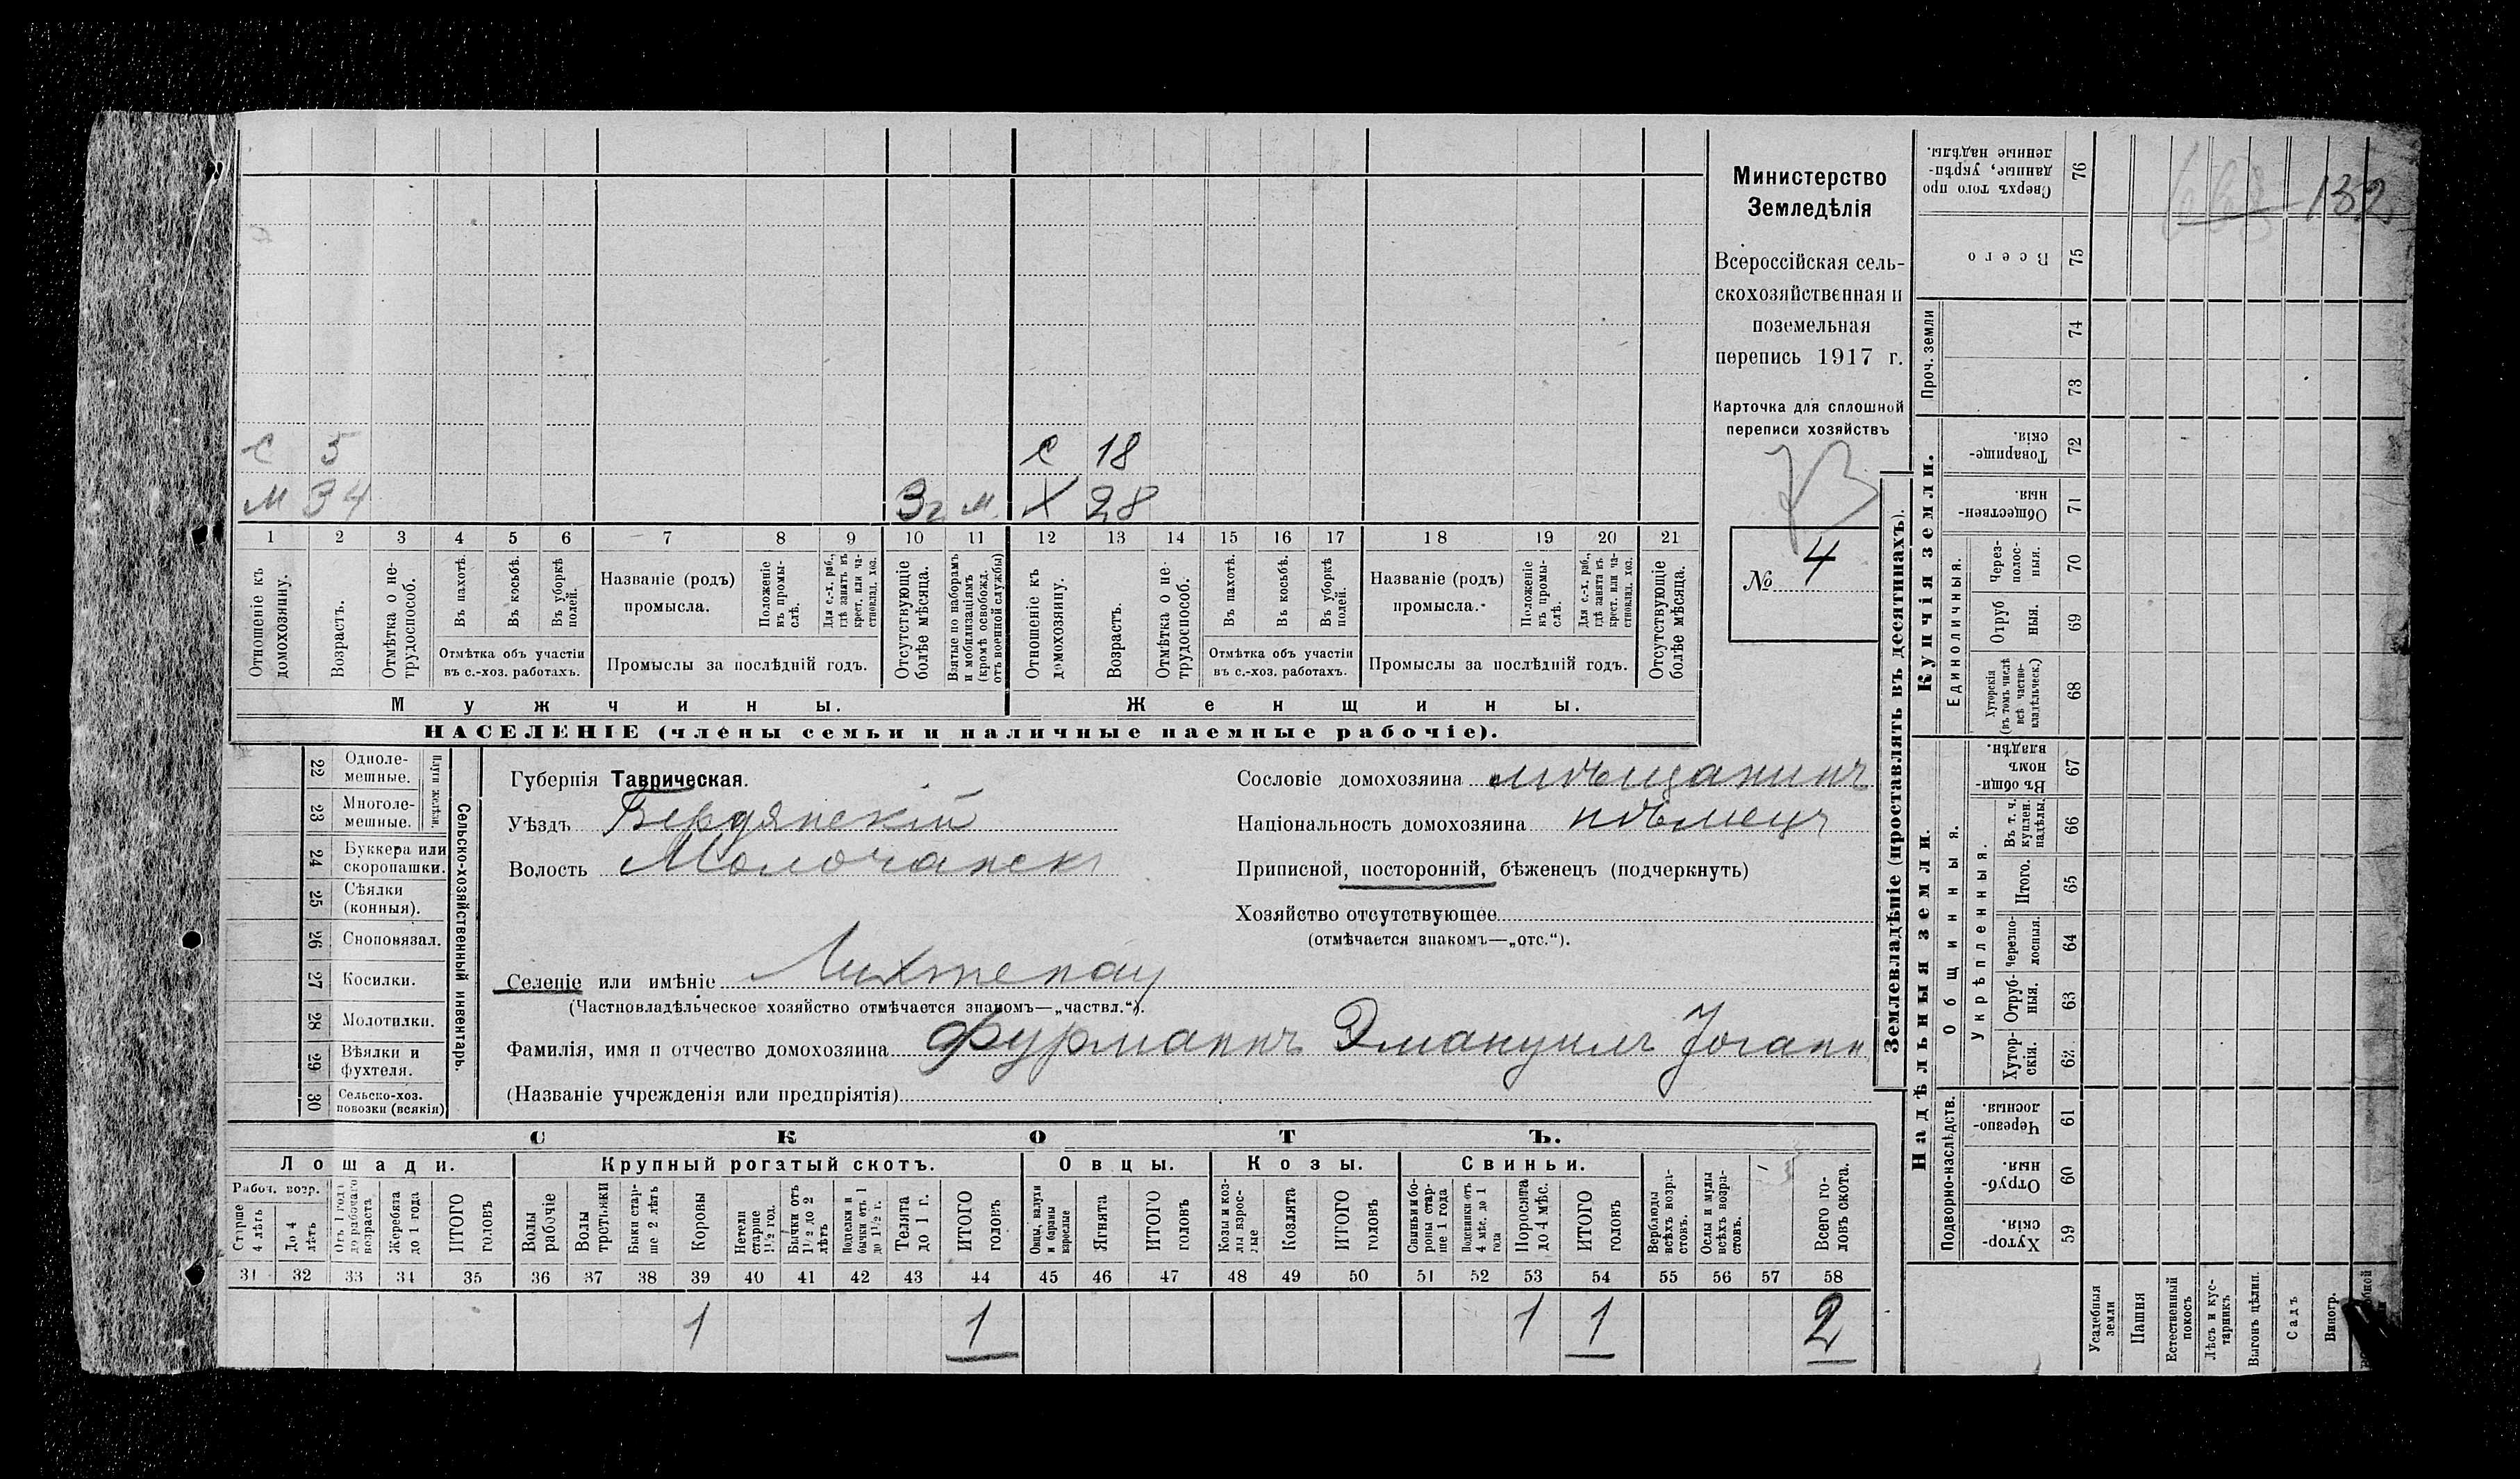 С 5 С 18
М 34 3 г м. Х 28
1 2 3 4 5 6 7 8 9 10 11 12 13 14 15 16 17 18 19 20 21
Отношеніе къ домохозяину.
Возрастъ.
Отмѣтка о нетрудоспособ.
Въ пахотѣ.
Въ косьбѣ.
Въ уборкѣ полей.
Отмѣтка объ участіи
въ с.-хоз. работахъ.
Названіе (родъ)
промысла.
Положеніе въ промыслѣ.
Для с.-х. раб., гдѣ занятъ въ крест. или частновлад. хоз.
Промыслы за послѣдній годъ.
Отсутствующіе болѣе мѣсяца.
Взятые по наборамъ и мобилизаціямъ (кромѣ освобожд. отъ военной службы)
Отношеніе къ домохозяину.
Возрастъ.
Отмѣтка о нетрудоспособ.
Въ пахотѣ.
Въ косьбѣ.
Въ уборкѣ полей.
Отмѣтка объ участіи
въ с.-хоз. работахъ.
Названіе (родъ)
промысла.
Положеніе въ промыслѣ.
Для с.-х. раб., гдѣ занята въ крест. или частновлад. хоз.
Промыслы за послѣдній годъ.
Отсутствующіе болѣе мѣсяца.
Мужчины. Женщины.
НАСЕЛЕНІЕ (члены семьи и наличные наемные рабочіе).
Министерство
Земледѣлія
Всероссійская сель-
скохозяйственная и
поземельная
перепись 1917 г.
Карточка для сплошной
переписи хозяйствъ
№ 4
22 Однолемешные.
23 Многолемешные.
Плуги желѣзн.
24 Буккера или скоропашки.
25 Сѣялки (конныя).
26 Сноповязал.
27 Косилки.
28 Молотилки.
29 Вѣялки и фухтеля.
30 Сельско-хоз. повозки (всякія)
Сельско-хозяйственный инвентарь.
Губернія Таврическая.
Уѣздъ Бердянскій
Волость Молочанск
Сословіе домохозяина мѣщанинъ
Національность домохозяина нѣмецъ
Приписной, посторонній, бѣженецъ (подчеркнуть)
Хозяйство отсутствующее
(отмѣчается знакомъ—„отс.“).
Селеніе или имѣніе Лихтенау
(Частновладѣльческое хозяйство отмѣчается знакомъ—„частвл.“).
Фамилія, имя и отчество домохозяина Фурманнъ Эмануилъ Іоганн
(Названіе учрежденія или предпріятія)
СКОТЪ.
Лошади. Крупный рогатый скотъ. Овцы. Козы. Свиньи.
Рабоч. возр.
Старше 4 лѣтъ
До 4 лѣтъ
Отъ 1 года до рабочаго возраста
Жеребята до 1 года
ИТОГО головъ
Волы рабочіе
Волы третьяки
Быки старше 2 лѣтъ
Коровы
Нетели старше 1½ год.
Бычки отъ 1½ до 2 лѣтъ
Подтелки и бычки отъ 1 до 1½ г.
Телята до 1 г.
ИТОГО головъ
Овцы, валухи и бараны взрослые
Ягнята
ИТОГО головъ
Козы и козлы взрослые
Козлята
ИТОГО головъ
Свиньи и боровы старше 1 года
Подсвинки отъ 4 мѣс. до 1 года
Поросята до 4 мѣс.
ИТОГО головъ
Верблюды всѣхъ возрастовъ.
Ослы и мулы всѣхъ возрастовъ.
Всего головъ скота.
31 32 33 34 35 36 37 38 39 40 41 42 43 44 45 46 47 48 49 50 51 52 53 54 55 56 57 58
1 1 1 1 2
Землевладѣніе (проставлять въ десятинахъ).
Купчія земли.
Надѣльныя земли.
132
76 Сверхъ того проданные, укрѣпленные надѣлы.
75 Всего
Проч. земли
74
73
72 Товарищескія.
71 Общественныя.
Единоличныя.
70 Черезполосныя.
69 Отрубныя.
68 Хуторскія (въ томъ числѣ всѣ частновладѣльческ.)
Общинныя.
67 Въ общинномъ владѣн.
Укрѣпленныя.
66 Въ т. ч. куплен. надѣлы.
65 Итого.
64 Черезполосныя.
63 Отрубныя.
62 Хуторскія.
Подворно-наслѣдств.
61 Черезполосныя.
60 Отрубныя.
59 Хуторскія.
Усадебныя земли
Пашня
Естественный покосъ
Лѣсъ и кустарникъ
Выгонъ цѣлин.
Садъ
Виногр.